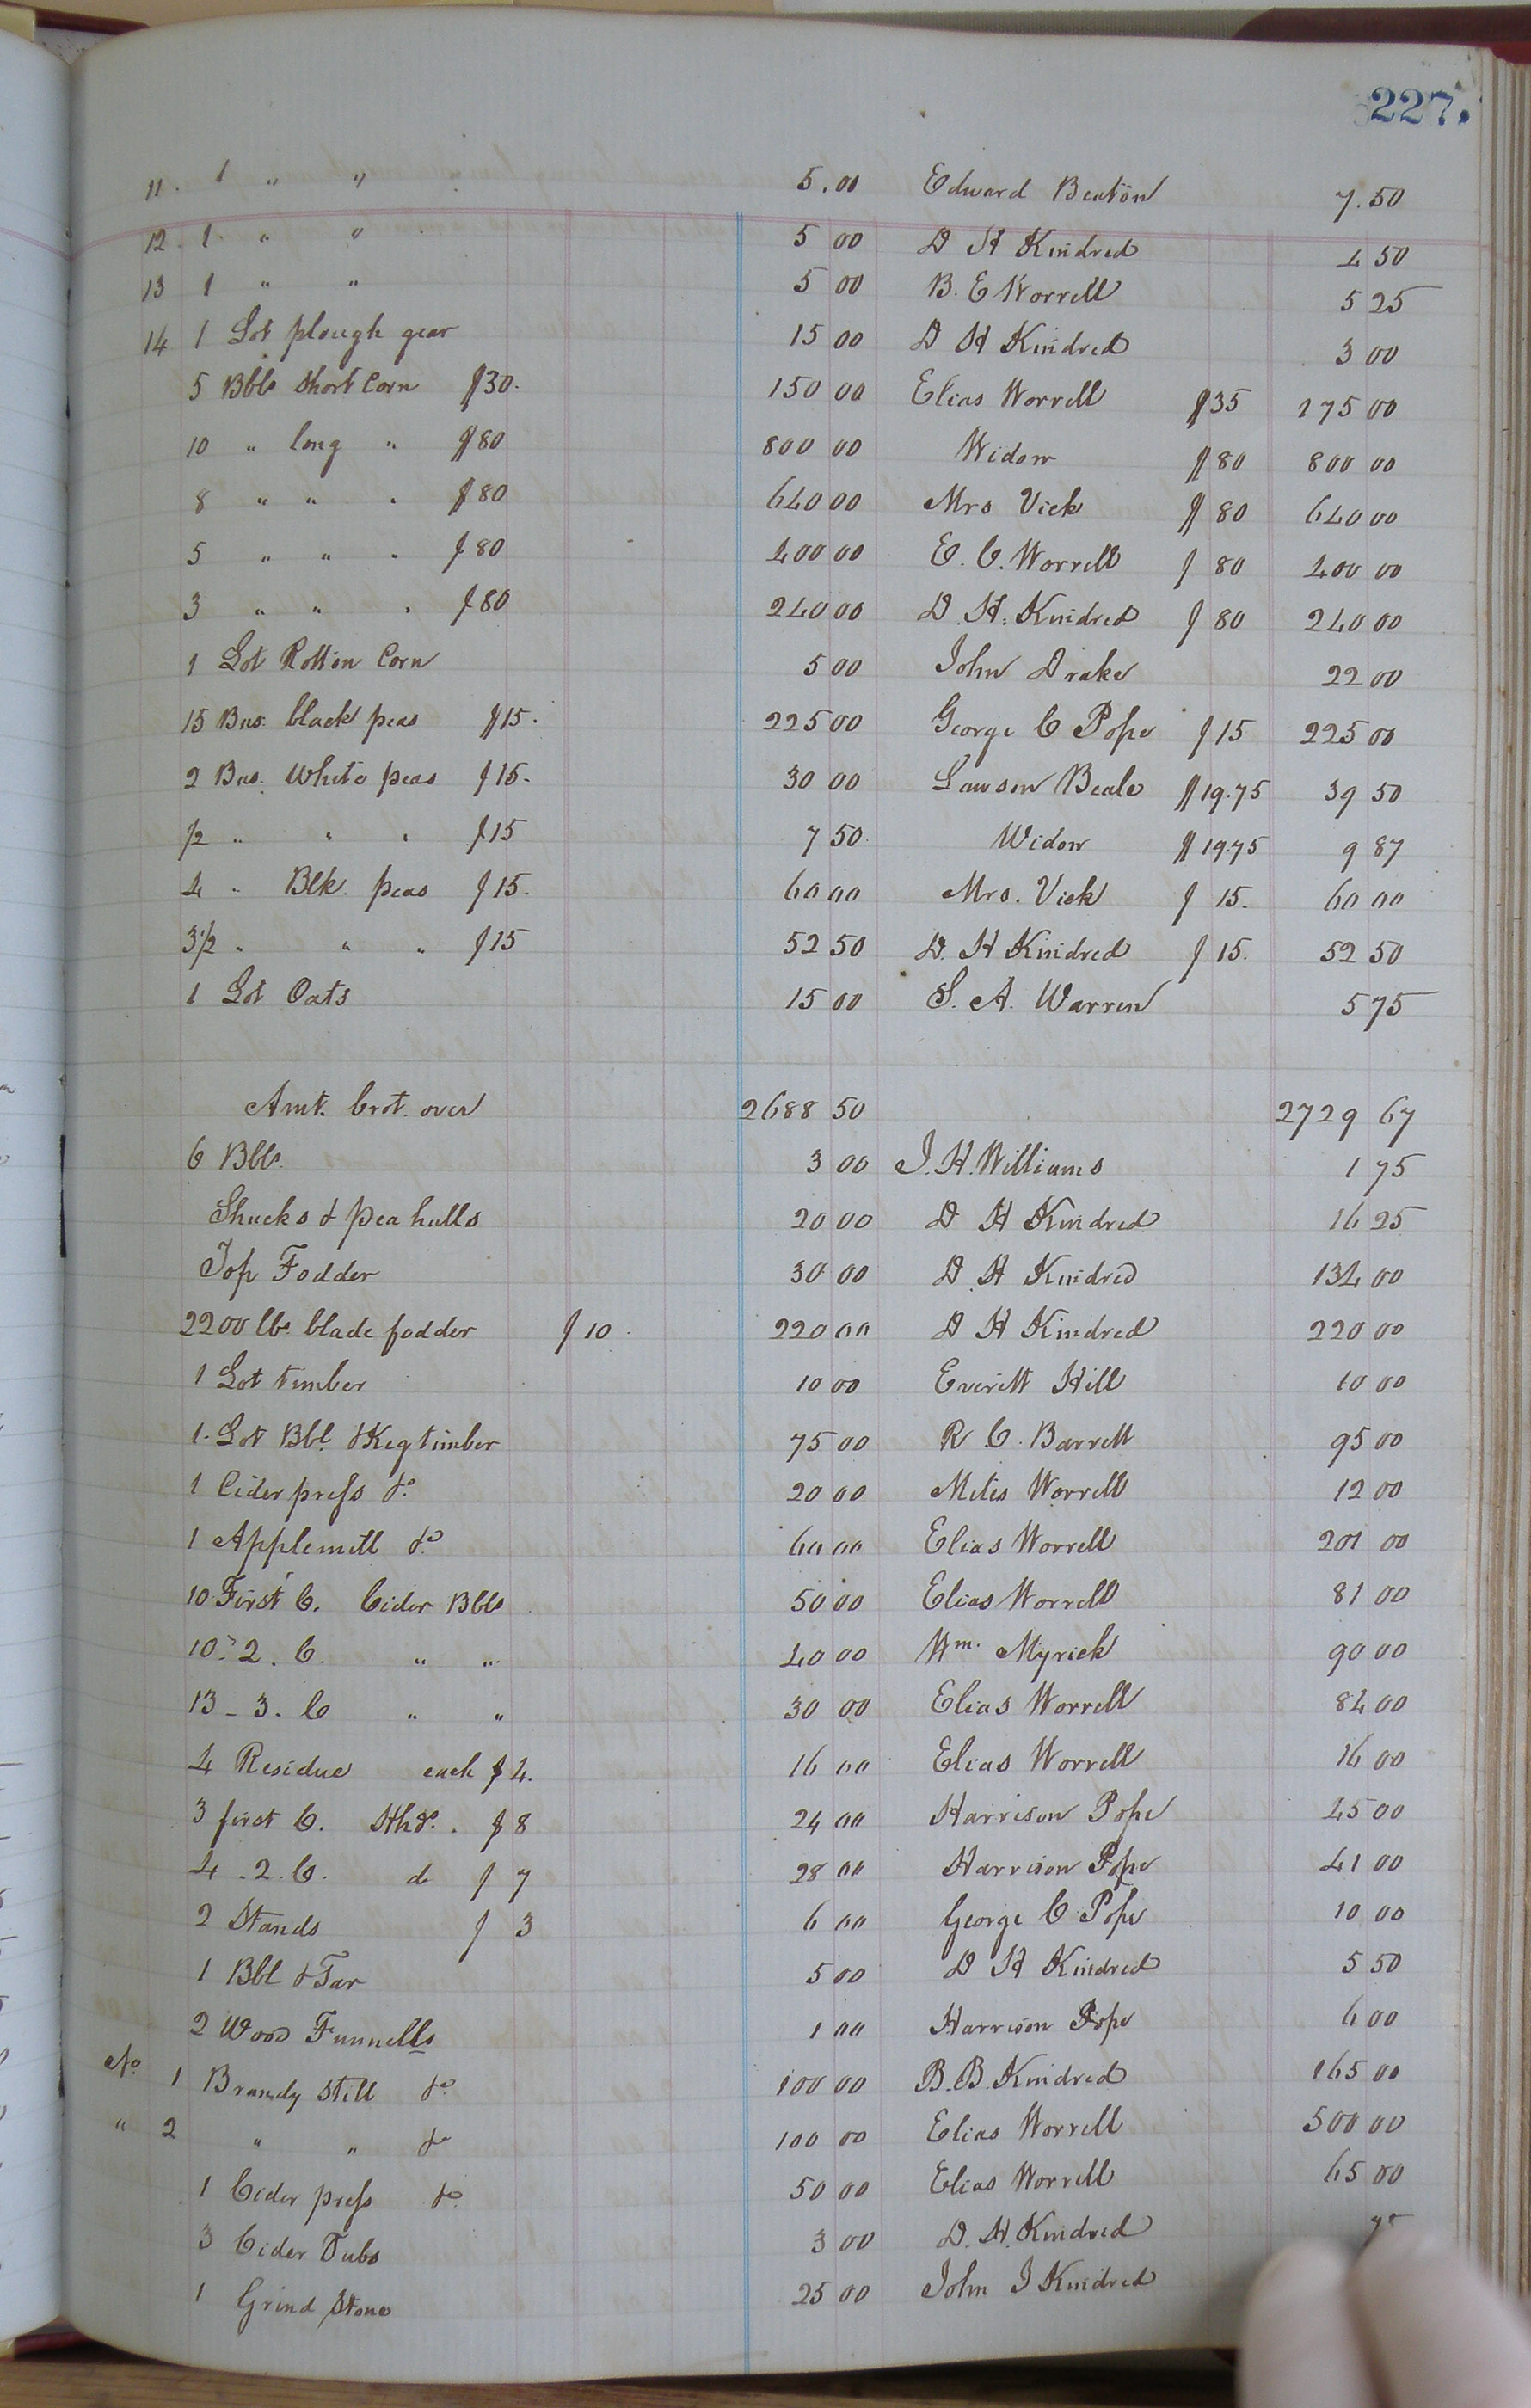 227.
11. 1 " " 5.00 Edward Beaton 7.50
12. 1. " " 5 00 D H Kindred 4 50
13 1 " " 5 00 B. E Worrell 5 25
14 1 Lot plough gear 15 00 D H Kindred 3 00
5 Bbls Short Corn $30. 150 00 Elias Worrell $35 175 00
10 " long " $80 800 00 Widow $80 800 00
8 " " " $80 640 00 Mrs Vick $80 640 00
5 " " " $80 400 00 E. C. Worrell $80 400 00
3 " " " $80 240 00 D. H. Kindred $80 240 00
1 Lot Rotten Corn 5 00 John Drake 22 00
15 Bus. black peas $15. 225 00 George C Pope $15 225 00
2 Bus. White peas $15. 30 00 Lawson Beale $19.75 39 50
1/2 " " " $15 7 50 Widow $19.75 9 87
4 " Blk. peas $15. 60 00 Mrs. Vick $15. 60 00
3 1/2 " " " $15 52 50 D. H Kindred $15. 52 50
1 Lot Oats 15 00 S. A. Warren 5 75
Amt. brot. over 2688 50 2729 67
6 Bbls. 3 00 J. H. Williams 1 75
Shucks & pea hulls 20 00 D H Kindred 16 25
Top Fodder 30 00 D. H Kindred 134 00
2200 lbs. blade fodder $10. 220 00 D H Kindred 220 00
1 Lot timber 10 00 Everitt Hill 10 00
1. Lot Bbl. & Keg timber 75 00 R C. Barrett 95 00
1 Cider press &c. 20 00 Miles Worrell 12 00
1 Applemill &c. 60 00 Elias Worrell 201 00
10 First C. Cider Bbls 50 00 Elias Worrell 81 00
10 - 2. C. " " 40 00 Wm. Myrick 90 00
13 - 3. C " " 30 00 Elias Worrell 84 00
4 Residue each $4. 16 00 Elias Worrell 16 00
3 first C. Hhds. $8 24 00 Harrison Pope 45 00
4 - 2. C. do $7 28 00 Harrison Pope 41 00
2 Stands $3 6 00 George C Pope 10 00
1 Bbl & Tar 5 00 D H Kindred 5 50
2 Wood Funnells 1 00 Harrison Pope 6 00
No. 1 Brandy Still &c. 100 00 B. B. Kindred 165 00
" 2 " " &c 100 00 Elias Worrell 500 00
1 Cider press &c. 50 00 Elias Worrell 65 00
3 Cider Tubs 3 00 D. H. Kindred
1 Grind Stone 25 00 John J Kindred